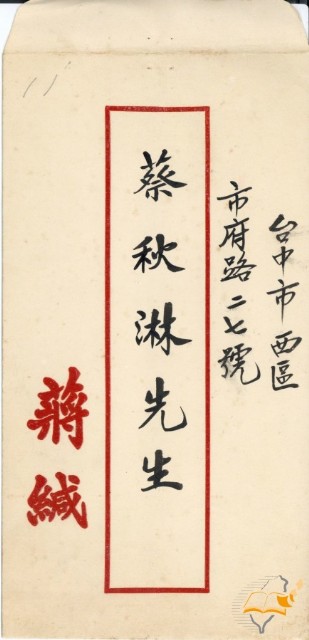 台中市西區
市府路二七號
蔡秋淋先生
蔣緘